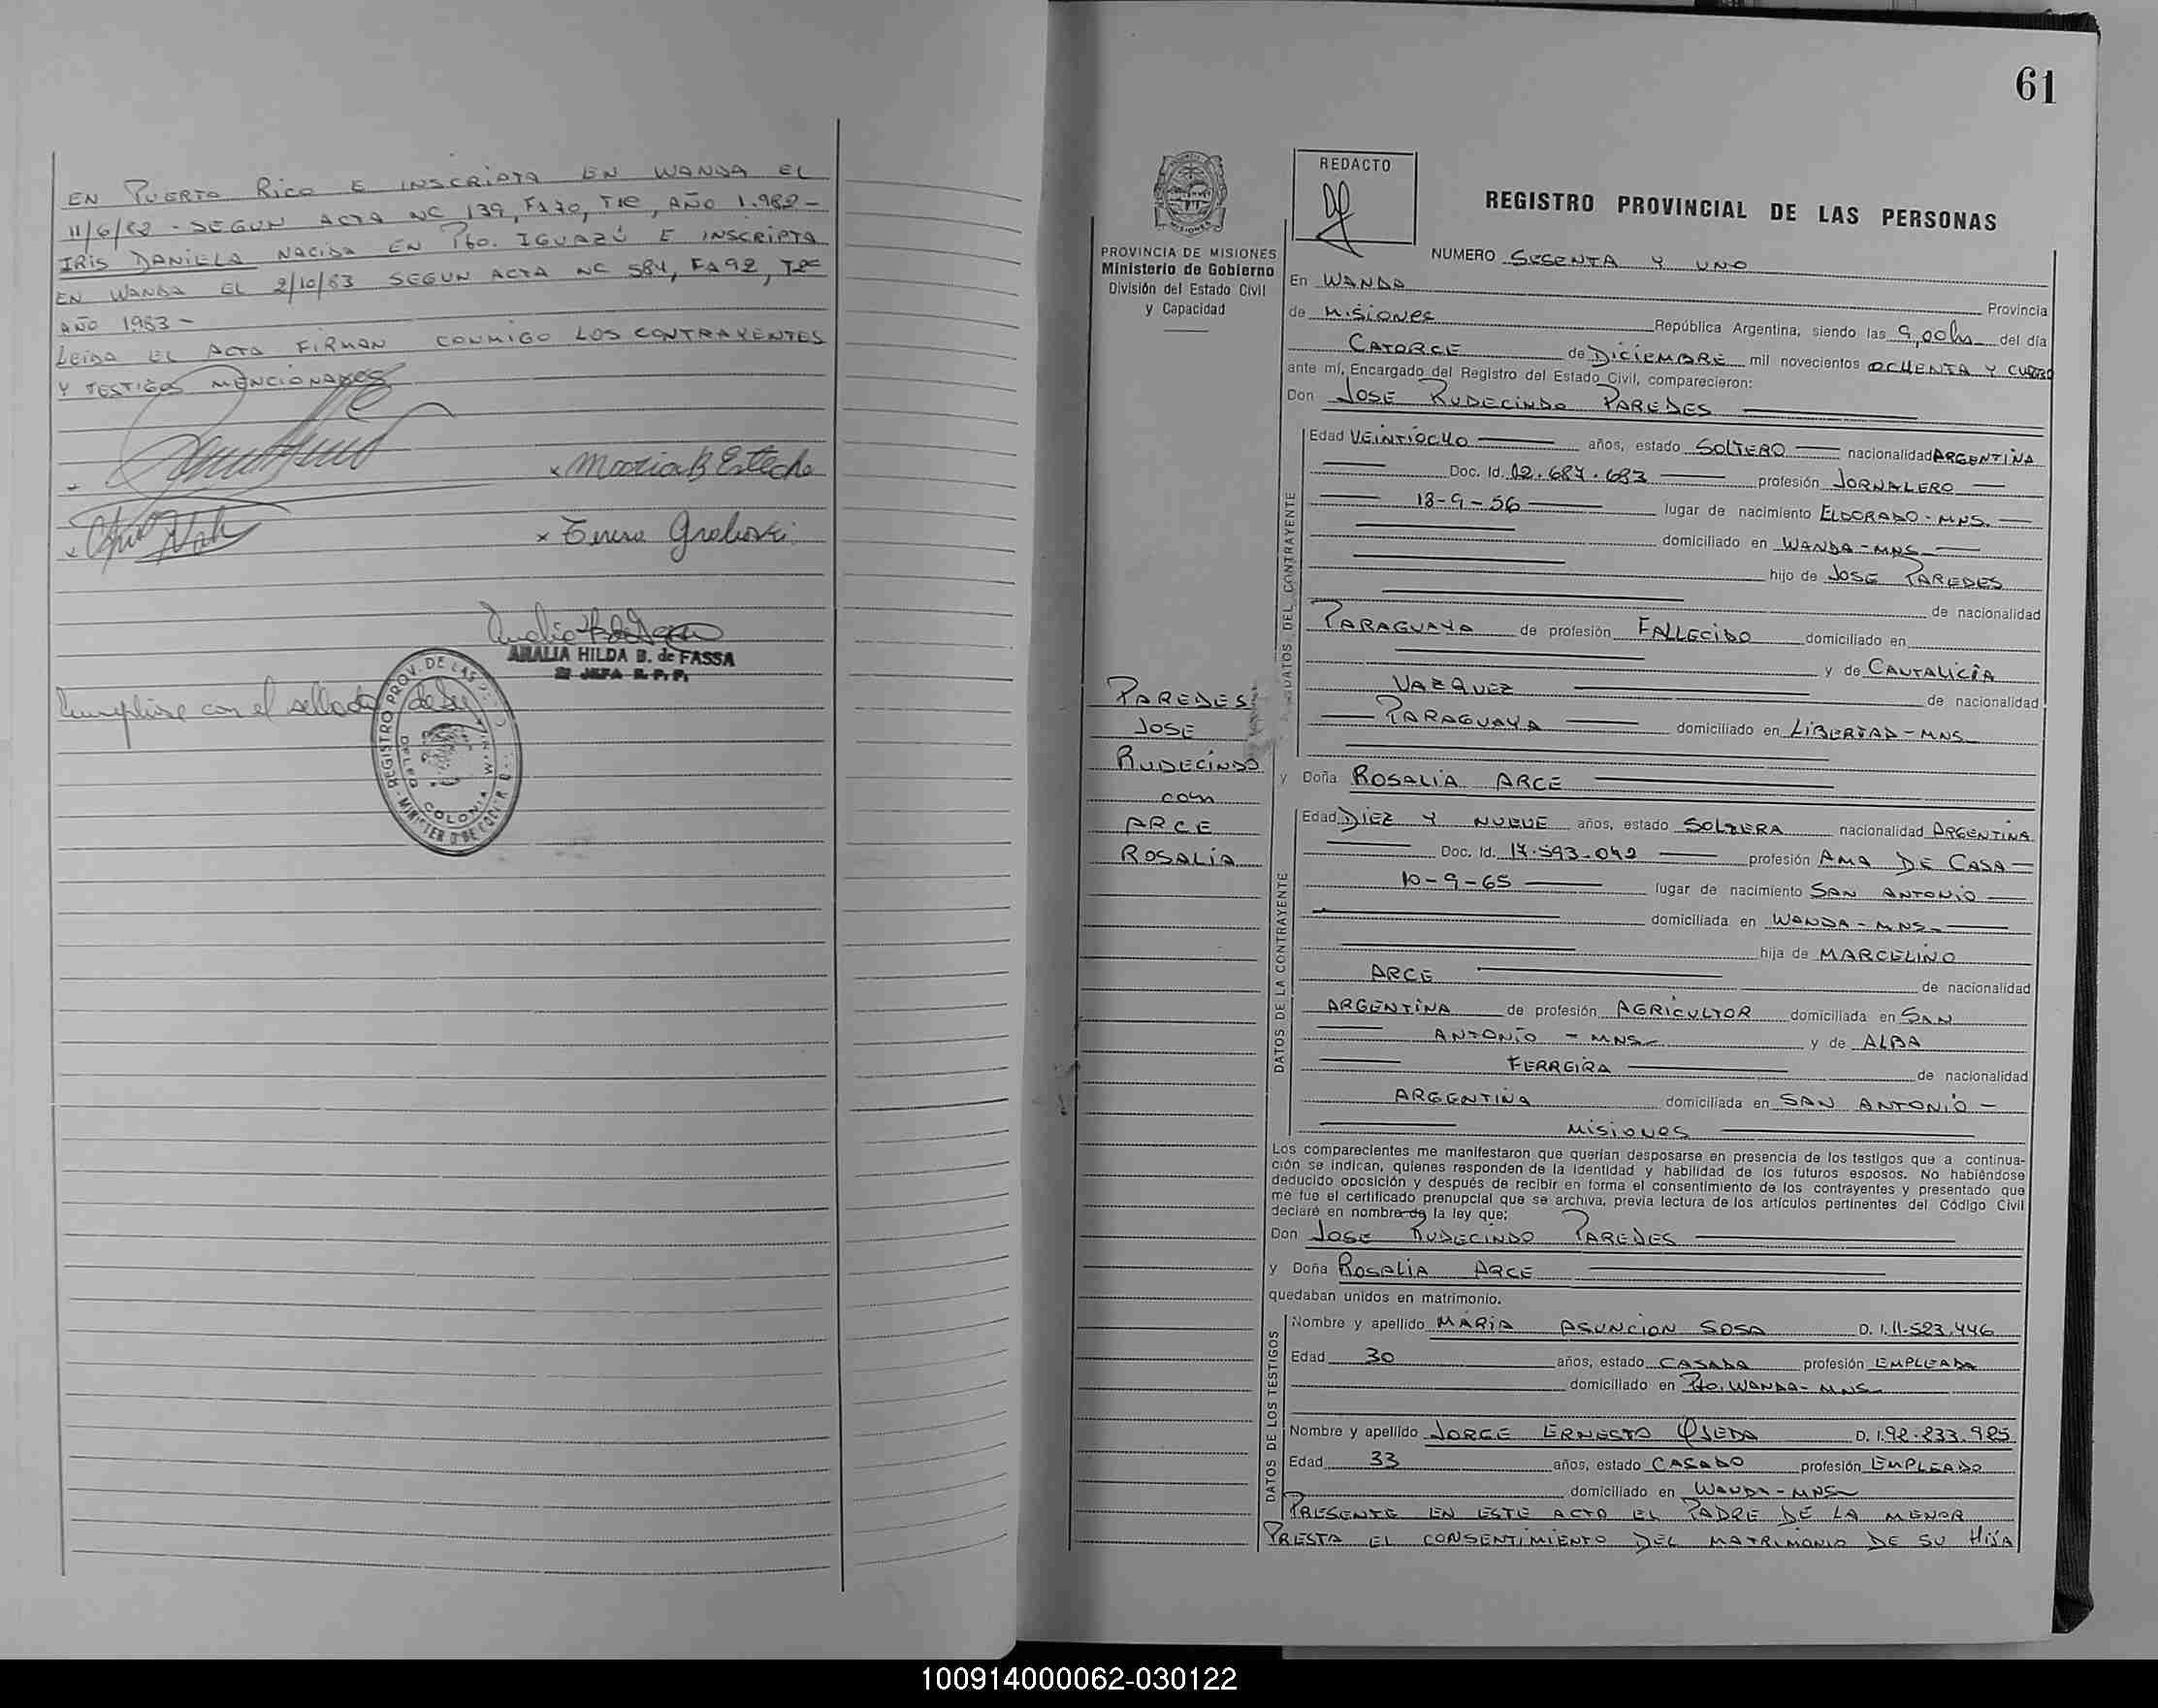 EN PUERTO RICO E INSCRIPTA EN WANDA EL
11/6/82 - SEGUN ACTA Nº 139, Fº 170, Tº, AÑO 1.982 -
IRIS DANIELA NACIDA EN Pto. IGUAZÚ E INSCRIPTA
EN WANDA EL 2/10/83 SEGUN ACTA Nº 584, Fº 92,
AÑO 1983 -
LEIDA EL ACTA FIRMAN CONMIGO LOS CONTRAYENTES
Y TESTIGOS MENCIONADOS
x Maria B Esteche
x Teresa
AMALIA HILDA B. de FASSA
JEFA R. P. P.
con el sellado de ley
REGISTRO PROV. DE LAS
COLONIA
61
REDACTO
REGISTRO PROVINCIAL DE LAS PERSONAS
PROVINCIA DE MISIONES
Ministerio de Gobierno
División del Estado Civil
y Capacidad
NUMERO SESENTA Y UNO
En WANDA Provincia
de MISIONES República Argentina, siendo las 9,00 hs del día
CATORCE de DICIEMBRE mil novecientos OCHENTA Y CUATRO
ante mí, Encargado del Registro del Estado Civil, comparecieron:
Don JOSE RUDECINDO PAREDES
DATOS DEL CONTRAYENTE
Edad VEINTIOCHO años, estado SOLTERO nacionalidad ARGENTINA
Doc. Id. 12.687.683 profesión JORNALERO
18-9-56 lugar de nacimiento ELDORADO - MNS.
domiciliado en WANDA - MNS
hijo de JOSE PAREDES
de nacionalidad
PARAGUAYA de profesión FALLECIDO domiciliado en
y de CANTALICIA
VAZQUEZ de nacionalidad
PARAGUAYA domiciliado en LIBERTAD - MNS
PAREDES
JOSE
RUDECINDO
con
ARCE
ROSALIA
y Doña ROSALIA ARCE
DATOS DE LA CONTRAYENTE
Edad DIEZ Y NUEVE años, estado SOLTERA nacionalidad ARGENTINA
Doc. Id. 17.593.042 profesión AMA DE CASA
10-9-65 lugar de nacimiento SAN ANTONIO
domiciliada en WANDA - MNS
hija de MARCELINO
ARCE de nacionalidad
ARGENTINA de profesión AGRICULTOR domiciliada en SAN
ANTONIO - MNS y de ALBA
FERREIRA de nacionalidad
ARGENTINA domiciliada en SAN ANTONIO -
MISIONES
Los comparecientes me manifestaron que querían desposarse en presencia de los testigos que a continua-
ción se indican, quienes responden de la identidad y habilidad de los futuros esposos. No habiéndose
deducido oposición y después de recibir en forma el consentimiento de los contrayentes y presentado que
me fue el certificado prenupcial que se archiva, previa lectura de los artículos pertinentes del Código Civil
declaré en nombre de la ley que:
Don JOSE RUDECINDO PAREDES
y Doña ROSALIA ARCE
quedaban unidos en matrimonio.
DATOS DE LOS TESTIGOS
Nombre y apellido MARIA ASUNCION SOSA D. I. 11.523.446
Edad 30 años, estado CASADA profesión EMPLEADA
domiciliado en Pto. WANDA - MNS
Nombre y apellido JORGE ERNESTO OJEDA D. I. 92.233.925
Edad 33 años, estado CASADO profesión EMPLEADO
domiciliado en WANDA - MNS
PRESENTE EN ESTE ACTO EL PADRE DE LA MENOR
PRESTA EL CONSENTIMIENTO DEL MATRIMONIO DE SU HIJA
100914000062-030122